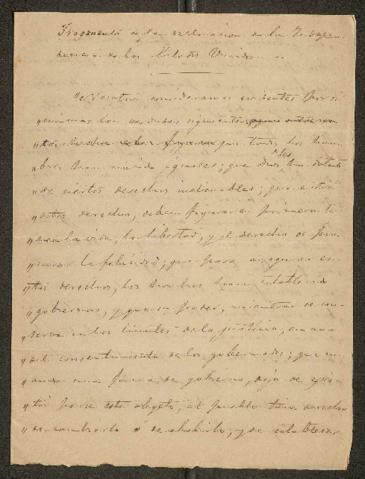 Fragmento de la declaración de la Indepen
dencia de los Estados Unidos.
"Nosotros consideramos evidentes por sí
mismas las verdades siguientes,
que todos los hom
"bres han nacido iguales; que Dios les ha dotado
"de ciertos derechos inalienables; que entre
"estos derechos, deben figurar en primera lí
"nea la vida, la libertad, y el derecho de
"la felicidad; que para asegurar es
"tos derechos, los hombres han establecido
"gobiernos, y que su poder,
en los límites de la justicia, emana
"del consentimiento de los gobernados; que
una forma de gobierno, deja de exis
"tir para este objeto, el pueblo tiene derecho
"de cambiarla ó de abolirla, y de establecer